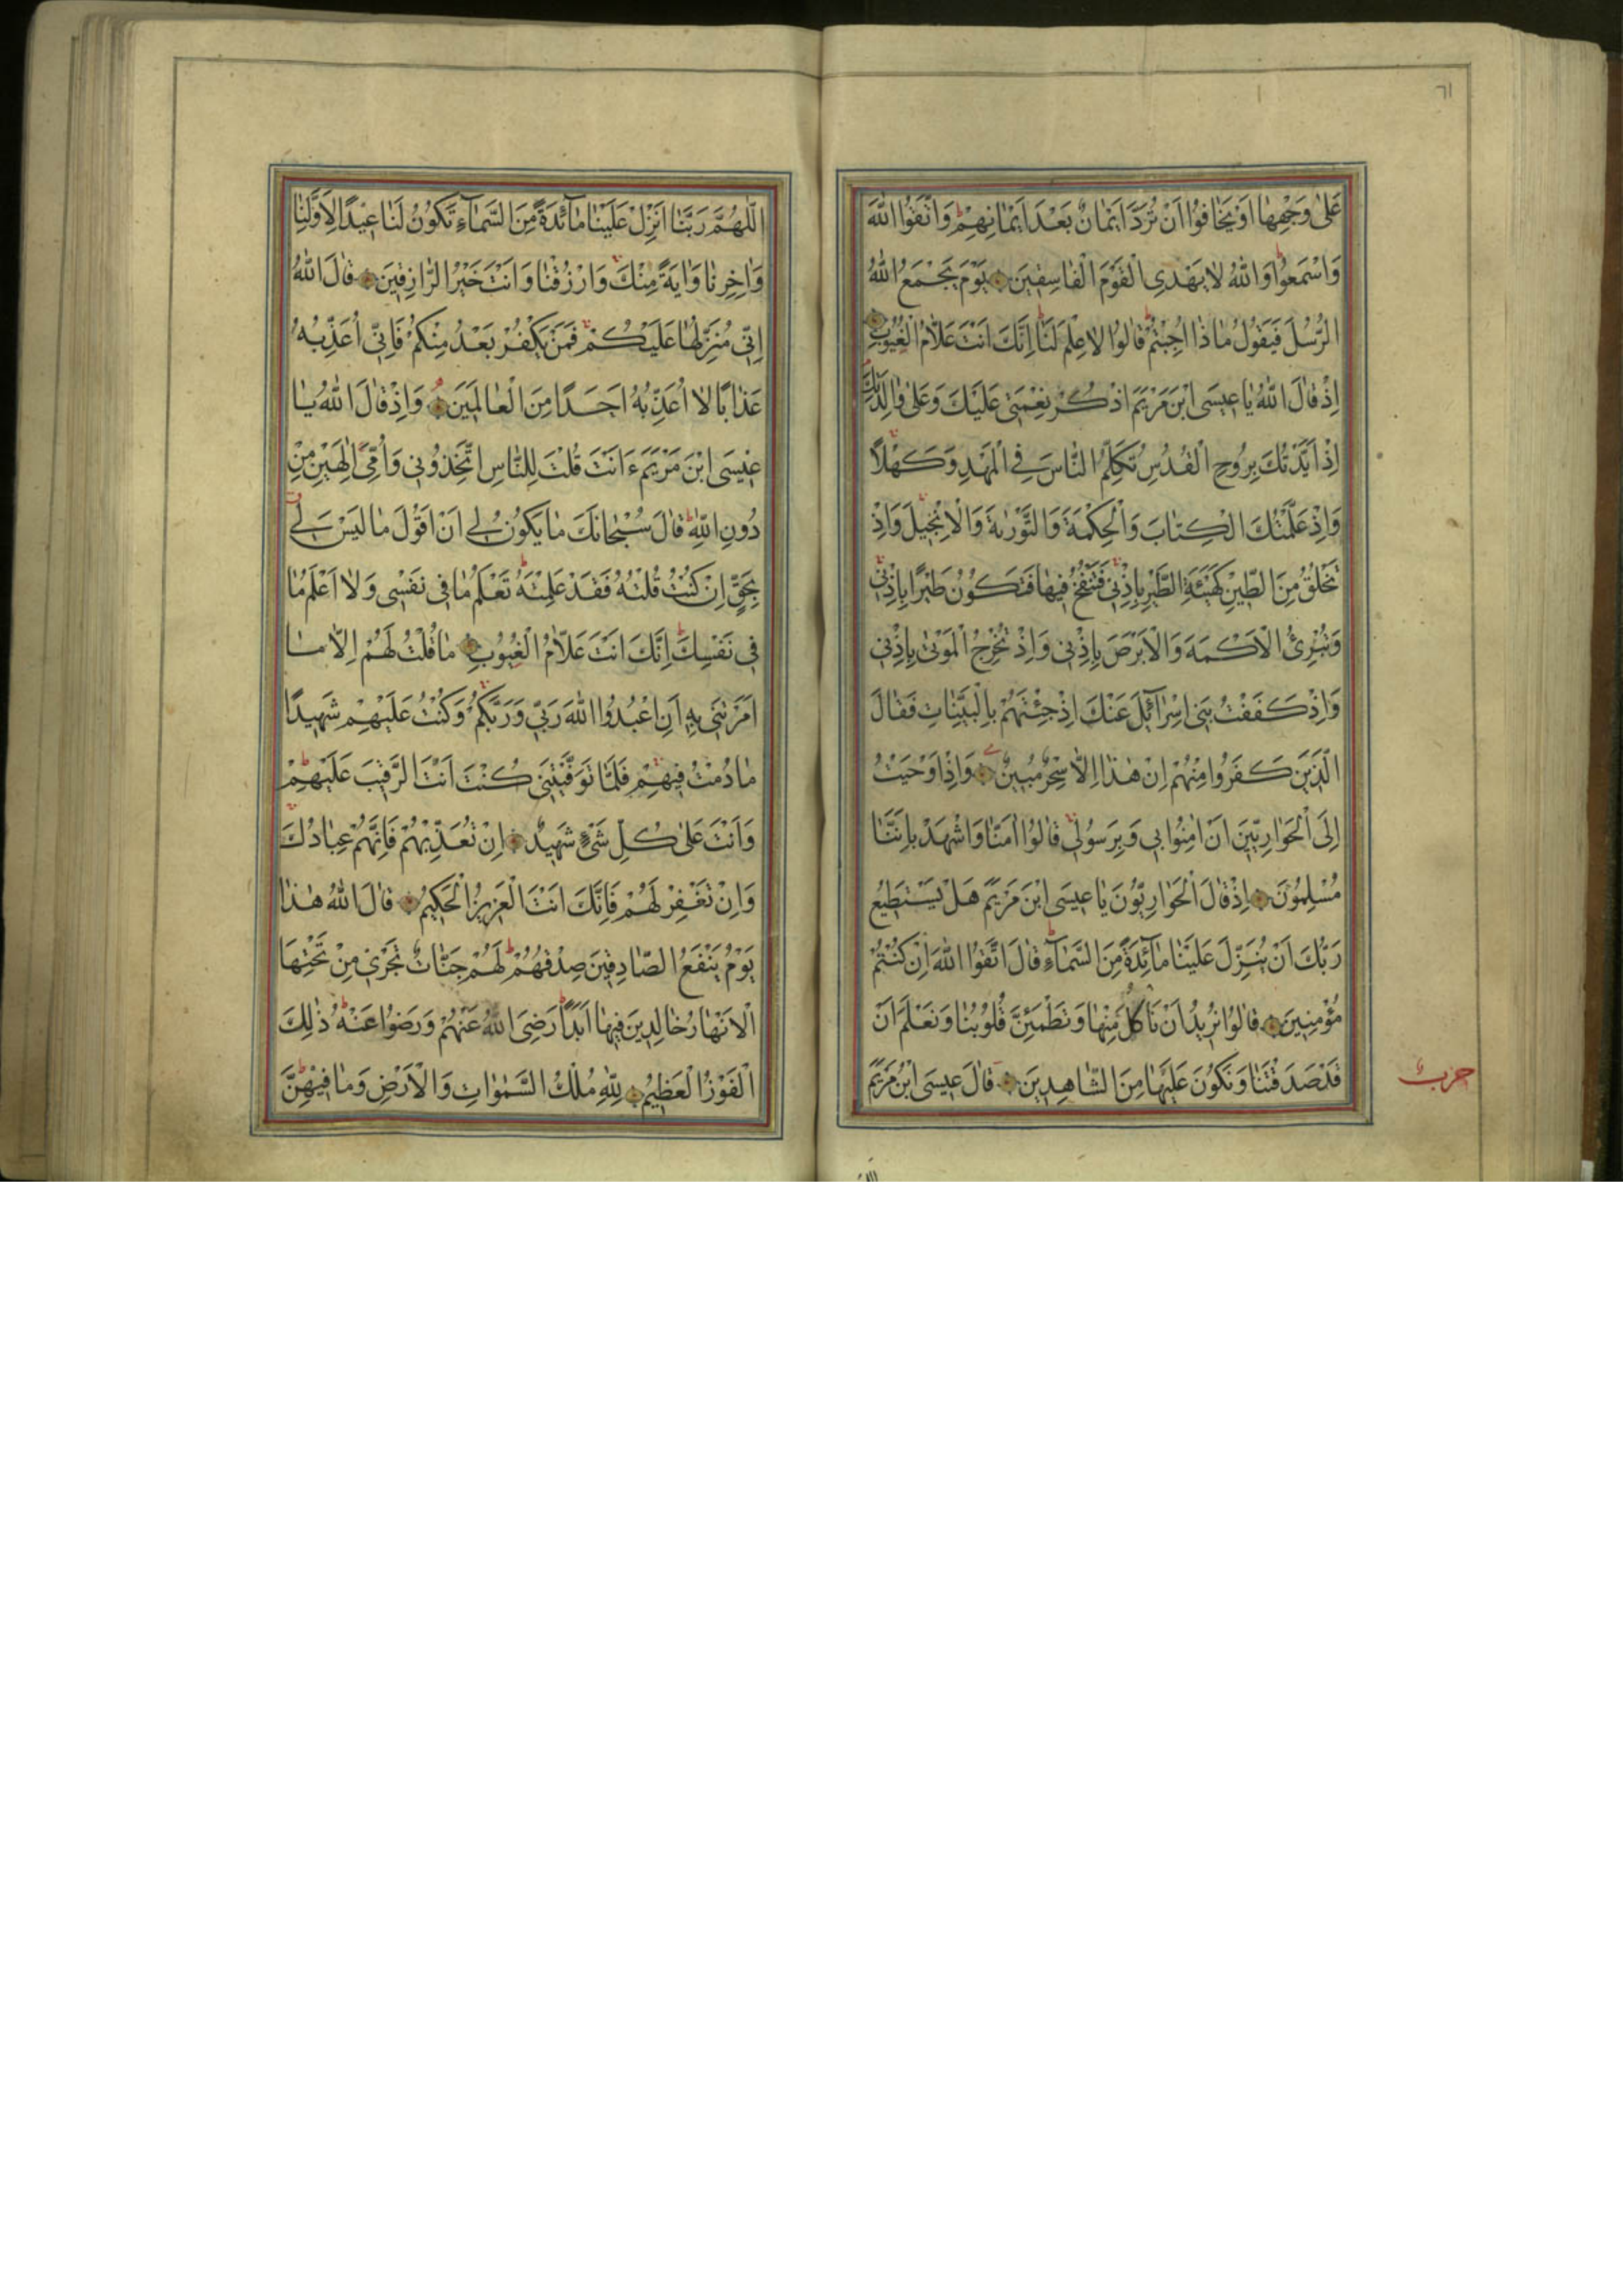 ٦١
عَلٰى وَجْهِهَا اَوْ يَخَافُوا اَنْ تُرَدَّ اَيْمَانٌ بَعْدَ اَيْمَانِهِمْ وَاتَّقُوا اللّٰهَ
وَاسْمَعُوا وَاللّٰهُ لَا يَهْدِى الْقَوْمَ الْفَاسِقِينَ يَوْمَ يَجْمَعُ اللّٰهُ
الرُّسُلَ فَيَقُولُ مَاذَا اُجِبْتُمْ قَالُوا لَا عِلْمَ لَنَا اِنَّكَ اَنْتَ عَلَّامُ الْغُيُوبِ
اِذْ قَالَ اللّٰهُ يَا عِيسَى ابْنَ مَرْيَمَ اذْكُرْ نِعْمَتِى عَلَيْكَ وَعَلٰى وَالِدَتِكَ
اِذْ اَيَّدْتُكَ بِرُوحِ الْقُدُسِ تُكَلِّمُ النَّاسَ فِى الْمَهْدِ وَكَهْلًا
وَاِذْ عَلَّمْتُكَ الْكِتَابَ وَالْحِكْمَةَ وَالتَّوْرٰيةَ وَالْاِنْجِيلَ وَاِذْ
تَخْلُقُ مِنَ الطِّينِ كَهَيْئَةِ الطَّيْرِ بِاِذْنِى فَتَنْفُخُ فِيهَا فَتَكُونُ طَيْرًا بِاِذْنِى
وَتُبْرِئُ الْاَكْمَهَ وَالْاَبْرَصَ بِاِذْنِى وَاِذْ تُخْرِجُ الْمَوْتٰى بِاِذْنِى
وَاِذْ كَفَفْتُ بَنِى اِسْرَآئِلَ عَنْكَ اِذْ جِئْتَهُمْ بِالْبَيِّنَاتِ فَقَالَ
الَّذِينَ كَفَرُوا مِنْهُمْ اِنْ هٰذَا اِلَّا سِحْرٌ مُبِينٌ وَاِذْ اَوْحَيْتُ
اِلَى الْحَوَارِيِّينَ اَنْ اٰمِنُوا بِى وَبِرَسُولِى قَالُوا اٰمَنَّا وَاشْهَدْ بِاَنَّنَا
مُسْلِمُونَ اِذْ قَالَ الْحَوَارِيُّونَ يَا عِيسَى ابْنَ مَرْيَمَ هَلْ يَسْتَطِيعُ
رَبُّكَ اَنْ يُنَزِّلَ عَلَيْنَا مَآئِدَةً مِنَ السَّمَآءِ قَالَ اتَّقُوا اللّٰهَ اِنْ كُنْتُمْ
مُؤْمِنِينَ قَالُوا نُرِيدُ اَنْ نَاْكُلَ مِنْهَا وَتَطْمَئِنَّ قُلُوبُنَا وَنَعْلَمَ اَنْ
قَدْ صَدَقْتَنَا وَنَكُونَ عَلَيْهَا مِنَ الشَّاهِدِينَ قَالَ عِيسَى ابْنُ مَرْيَمَ
حزب
اللّٰهُمَّ رَبَّنَا اَنْزِلْ عَلَيْنَا مَآئِدَةً مِنَ السَّمَآءِ تَكُونُ لَنَا عِيدًا لِاَوَّلِنَا
وَاٰخِرِنَا وَاٰيَةً مِنْكَ وَارْزُقْنَا وَاَنْتَ خَيْرُ الرَّازِقِينَ قَالَ اللّٰهُ
اِنِّى مُنَزِّلُهَا عَلَيْكُمْ فَمَنْ يَكْفُرْ بَعْدُ مِنْكُمْ فَاِنِّى اُعَذِّبُهُ
عَذَابًا لَا اُعَذِّبُهُ اَحَدًا مِنَ الْعَالَمِينَ وَاِذْ قَالَ اللّٰهُ يَا
عِيسَى ابْنَ مَرْيَمَ ءَاَنْتَ قُلْتَ لِلنَّاسِ اتَّخِذُونِى وَاُمِّىَ اِلٰهَيْنِ مِنْ
دُونِ اللّٰهِ قَالَ سُبْحَانَكَ مَا يَكُونُ لِى اَنْ اَقُولَ مَا لَيْسَ لِى
بِحَقٍّ اِنْ كُنْتُ قُلْتُهُ فَقَدْ عَلِمْتَهُ تَعْلَمُ مَا فِى نَفْسِى وَلَا اَعْلَمُ مَا
فِى نَفْسِكَ اِنَّكَ اَنْتَ عَلَّامُ الْغُيُوبِ مَا قُلْتُ لَهُمْ اِلَّا مَا
اَمَرْتَنِى بِهِ اَنِ اعْبُدُوا اللّٰهَ رَبِّى وَرَبَّكُمْ وَكُنْتُ عَلَيْهِمْ شَهِيدًا
مَا دُمْتُ فِيهِمْ فَلَمَّا تَوَفَّيْتَنِى كُنْتَ اَنْتَ الرَّقِيبَ عَلَيْهِمْ
وَاَنْتَ عَلٰى كُلِّ شَىْءٍ شَهِيدٌ اِنْ تُعَذِّبْهُمْ فَاِنَّهُمْ عِبَادُكَ
وَاِنْ تَغْفِرْ لَهُمْ فَاِنَّكَ اَنْتَ الْعَزِيزُ الْحَكِيمُ قَالَ اللّٰهُ هٰذَا
يَوْمُ يَنْفَعُ الصَّادِقِينَ صِدْقُهُمْ لَهُمْ جَنَّاتٌ تَجْرِى مِنْ تَحْتِهَا
الْاَنْهَارُ خَالِدِينَ فِيهَا اَبَدًا رَضِىَ اللّٰهُ عَنْهُمْ وَرَضُوا عَنْهُ ذٰلِكَ
الْفَوْزُ الْعَظِيمُ لِلّٰهِ مُلْكُ السَّمٰوَاتِ وَالْاَرْضِ وَمَا فِيهِنَّ